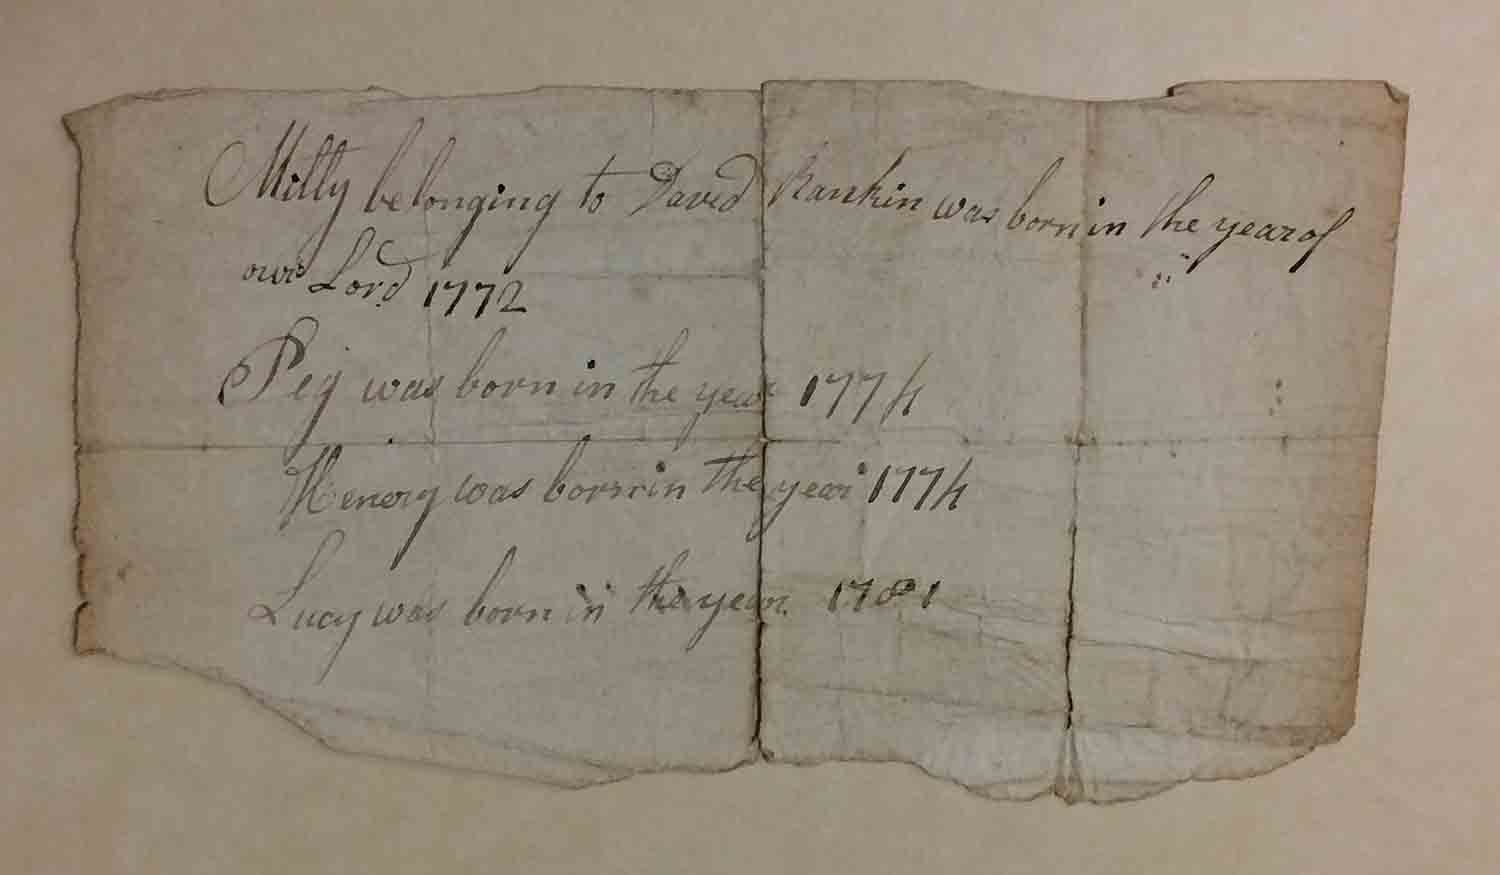 Milly belonging to David Rankin was born in the year of
our Lord 1772
Peg was born in the year 1774
Henery was born in the year 1774
Lucy was born in the year 1781